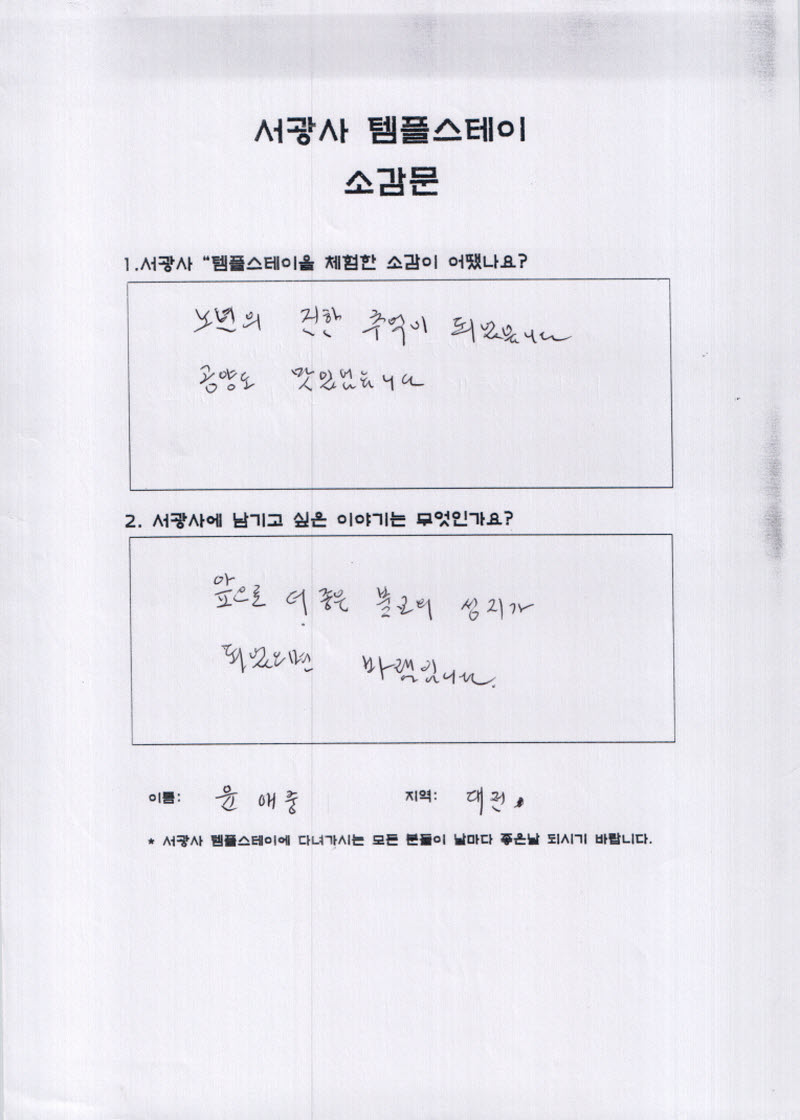 서광사 템플스테이
소감문
1.서광사 “템플스테이을 체험한 소감이 어땠나요?
노년의 진한 추억이 되었읍니다
공양도 맛있었읍니다
2. 서광사에 남기고 싶은 이야기는 무엇인가요?
앞으로 더 좋은 불교의 성지가
되었으면 바램입니다.
이름: 윤애중 지역: 대전
* 서광사 템플스테이에 다녀가시는 모든 분들이 날마다 좋은날 되시기 바랍니다.